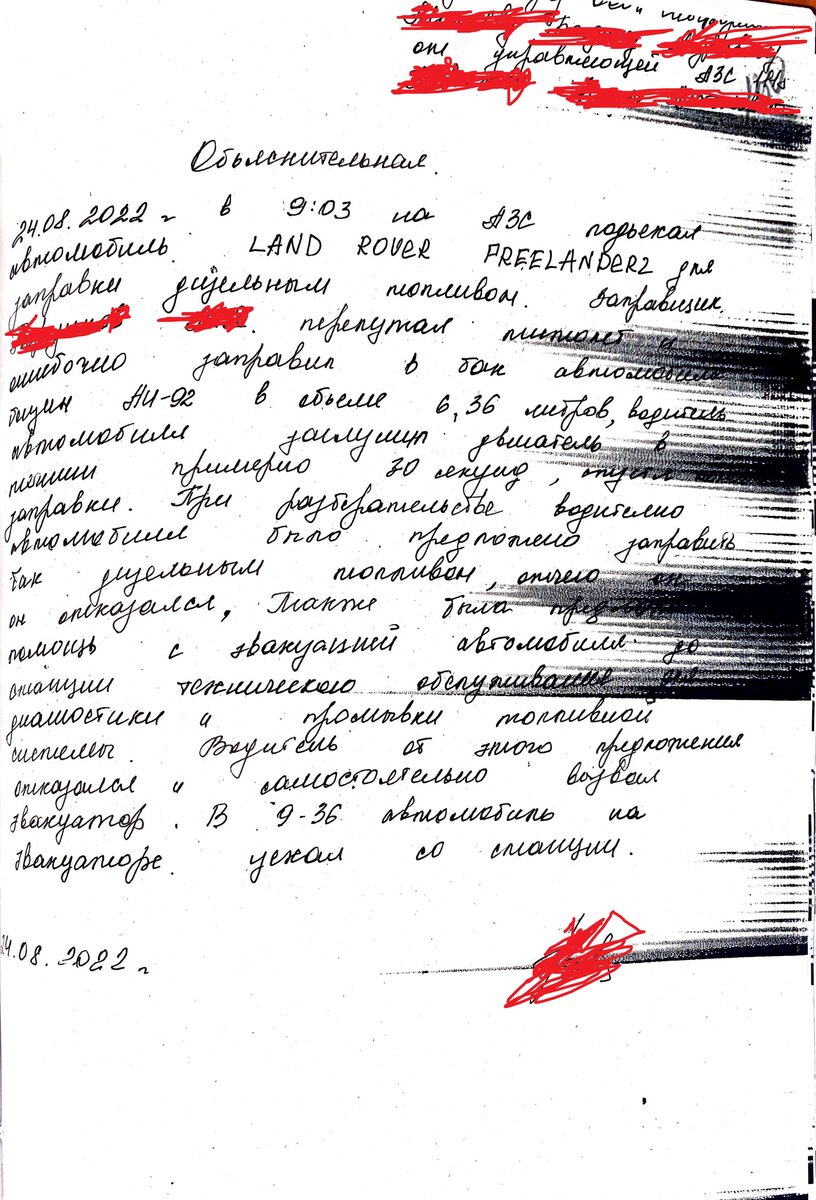 от управляющей АЗС
Объяснительная.
24.08.2022 г в 9:03 на АЗС подъехал
автомобиль LAND ROVER FREELANDER2 для
заправки дизельным топливом. Заправщик
перепутал пистолет и
ошибочно заправил в бак автомобиля
бензин АИ-92 в объеме 6,36 литров, водитель
автомобиля заглушил двигатель в
примерно 30 секунд,
заправки. При разберательстве водителю
автомобиля было предложено заправить
бак дизельным топливом, отчего он
он отказался, Также была
помощь с эвакуацией автомобиля до
станции технического обслуживания для
диагностики и промывки топливной
системы. Водитель от этого предложения
отказался и самостоятельно вызвал
эвакуатор. В 9-36 автомобиль на
эвакуаторе уехал со станции.
24.08.2022 г